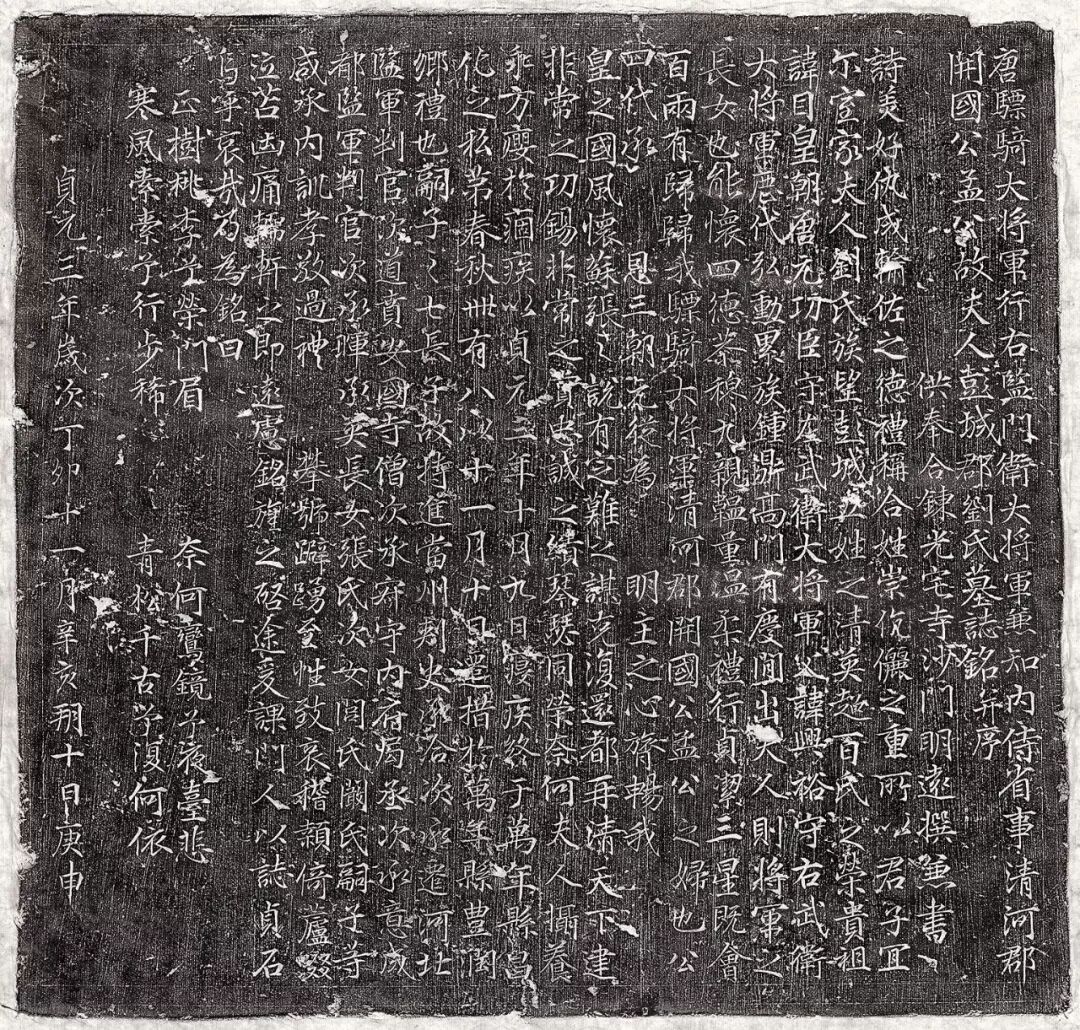 唐驃騎大將軍行右監門衛大將軍兼知內侍省事清河郡
開國公孟公故夫人彭城郡劉氏墓誌銘并序
供奉合鍊光宅寺沙門明遠撰兼書
詩美好仇成輔佐之德禮稱洽姓崇伉儷之重所以君子宜
尔室家夫人劉氏族望彭城五姓之清英趙百氏之榮貴祖
諱日皇朝唐元功臣守左武衛大將軍父諱興裕守右武衛
大將軍歷代弘勳累族鍾鼎高門有慶閒出夫人則將軍之
長女也能懷四德恭穆九親韞量溫柔禮行貞潔三星既會
百兩有歸歸我驃騎大將軍清河郡開國公孟公之婦也公
四代承 恩三朝先後為 明主之心膂暢我
皇之國風懷蘇張之說有之難之謀克復還都再清天下建
非常之功錫非常之賞忠誠之績琴瑟同榮奈何夫人攝養
乖方癭於痼疾以貞元三年十月九日寢疾終于萬年縣昌
化之私第春秋卌有八以十一月十日遷措於萬年縣豊閏
鄉禮也嗣子之七長子故特進當州刺史承洽次承遷河北
監軍判官次道賁安國寺僧次承府守內府局丞次承意咸
都監軍判官次承暉承英長女張氏次女閻氏闞氏嗣子等
咸承內訓孝敬過禮 攀號躃踴至性致哀稽顙倚廬啜
泣苫凷痛轜軒之即遠慮銘旌之啓途爰課門人以誌貞石
烏寧哀哉乃為銘曰
正樹桃李兮榮門眉 奈何鸞鏡兮夜臺悲
寒風索索兮行步稀 青松千古兮復何依
貞元三年歲次丁卯十一月辛亥朔十日庚申